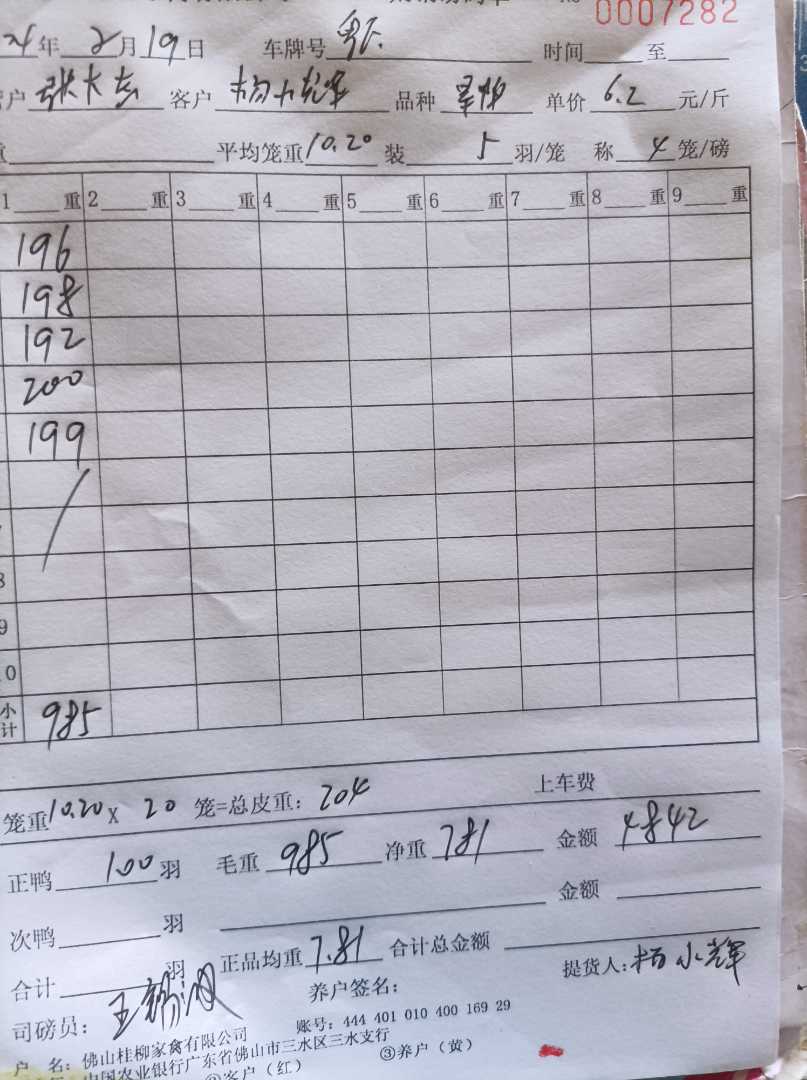 0007282
24年 2月19日 车牌号 粤 时间 至
户 张大 客户 杨小 品种 单价 6.2 元/斤
重 平均笼重 10.20 装 5 羽/笼 称 4 笼/磅
1 重 2 重 3 重 4 重 5 重 6 重 7 重 8 重 9 重
196
198
192
200
199
8
9
10
小计 985
笼重 10.20 X 20 笼=总皮重: 204 上车费
正鸭 100 羽 毛重 985 净重 781 金额 4842
次鸭 羽 金额
合计 羽 正品均重 7.81 合计总金额
养户签名: 提货人: 杨小辉
司磅员: 王
户 名: 佛山桂柳家禽有限公司 账号: 444 401 010 400 169 29
中国农业银行广东省佛山市三水区三水支行
②客户(红) ③养户(黄)